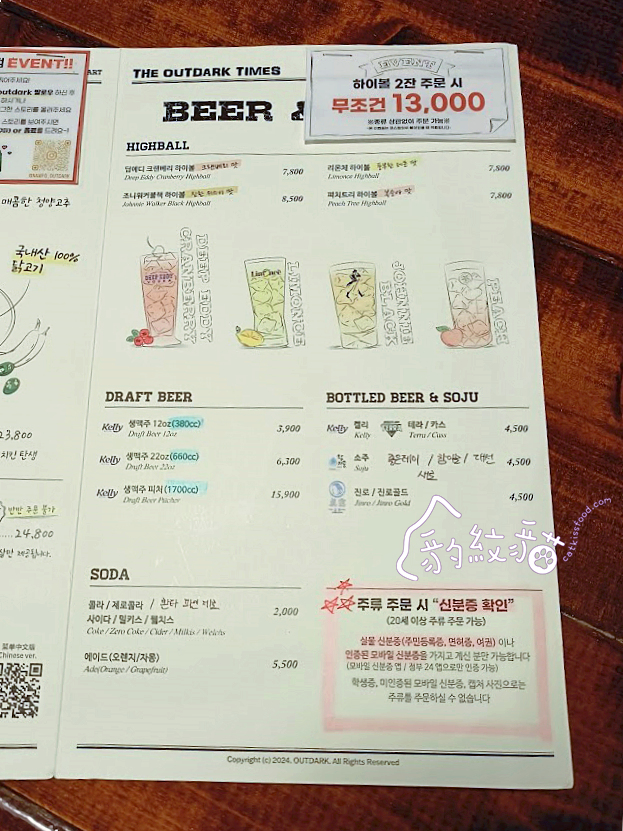 EVENT!!
outdark 팔로우 하신 후
스토리를 보여주시면
@NAMPO_OUTDARK
매콤한 청양고추
국내산 100%
닭고기
23,800
치킨 탄생
반반 주문 불가
24,800
菜单中文版
Chinese ver.
THE OUTDARK TIMES
BEER &
EVENT
하이볼 2잔 주문 시
무조건 13,000
※종류 상관없이 주문 가능※
HIGHBALL
딥에디 크랜베리 하이볼 크랜베리 맛 7,800
Deep Eddy Cranberry Highball
조니워커블랙 하이볼 8,500
Johnnie Walker Black Highball
리몬체 하이볼 7,800
Limonce Highball
피치트리 하이볼 복숭아 맛 7,800
Peach Tree Highball
DEEP EDDY CRANBERRY
LIMONCE
JOHNNIE BLACK
PEACH
DRAFT BEER
Kelly 생맥주 12oz(380cc) 3,900
Draft Beer 12oz
Kelly 생맥주 22oz(660cc) 6,300
Draft Beer 22oz
Kelly 생맥주 피처(1700cc) 15,900
Draft Beer Pitcher
BOTTLED BEER & SOJU
Kelly 켈리 테라 / 카스 4,500
Kelly Terra / Cass
소주 좋은데이 / 참이슬 / 대선 4,500
Soju 새로
진로 / 진로골드 4,500
Jinro / Jinro Gold
豹紋貓
catkissfood.com
SODA
콜라 / 제로콜라 / 환타 파인 제로 2,000
사이다 / 밀키스 / 웰치스
Coke / Zero Coke / Cider / Milkis / Welchs
에이드(오렌지/자몽) 5,500
Ade(Orange / Grapefruit)
주류 주문 시 "신분증 확인"
(20세 이상 주류 주문 가능)
실물 신분증(주민등록증, 면허증, 여권) 이나
인증된 모바일 신분증을 가지고 계신 분만 가능합니다
(모바일 신분증 앱 / 정부 24 앱으로만 인증 가능)
학생증, 미인증된 모바일 신분증, 캡처 사진으로는
주류를 주문하실 수 없습니다
Copyright (c) 2024. OUTDARK. All Rights Reserved